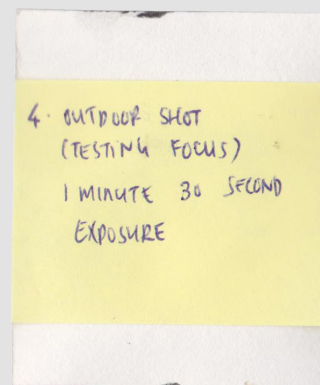 4. OUTDOOR SHOT
(TESTING FOCUS)
1 MINUTE 30 SECOND
EXPOSURE